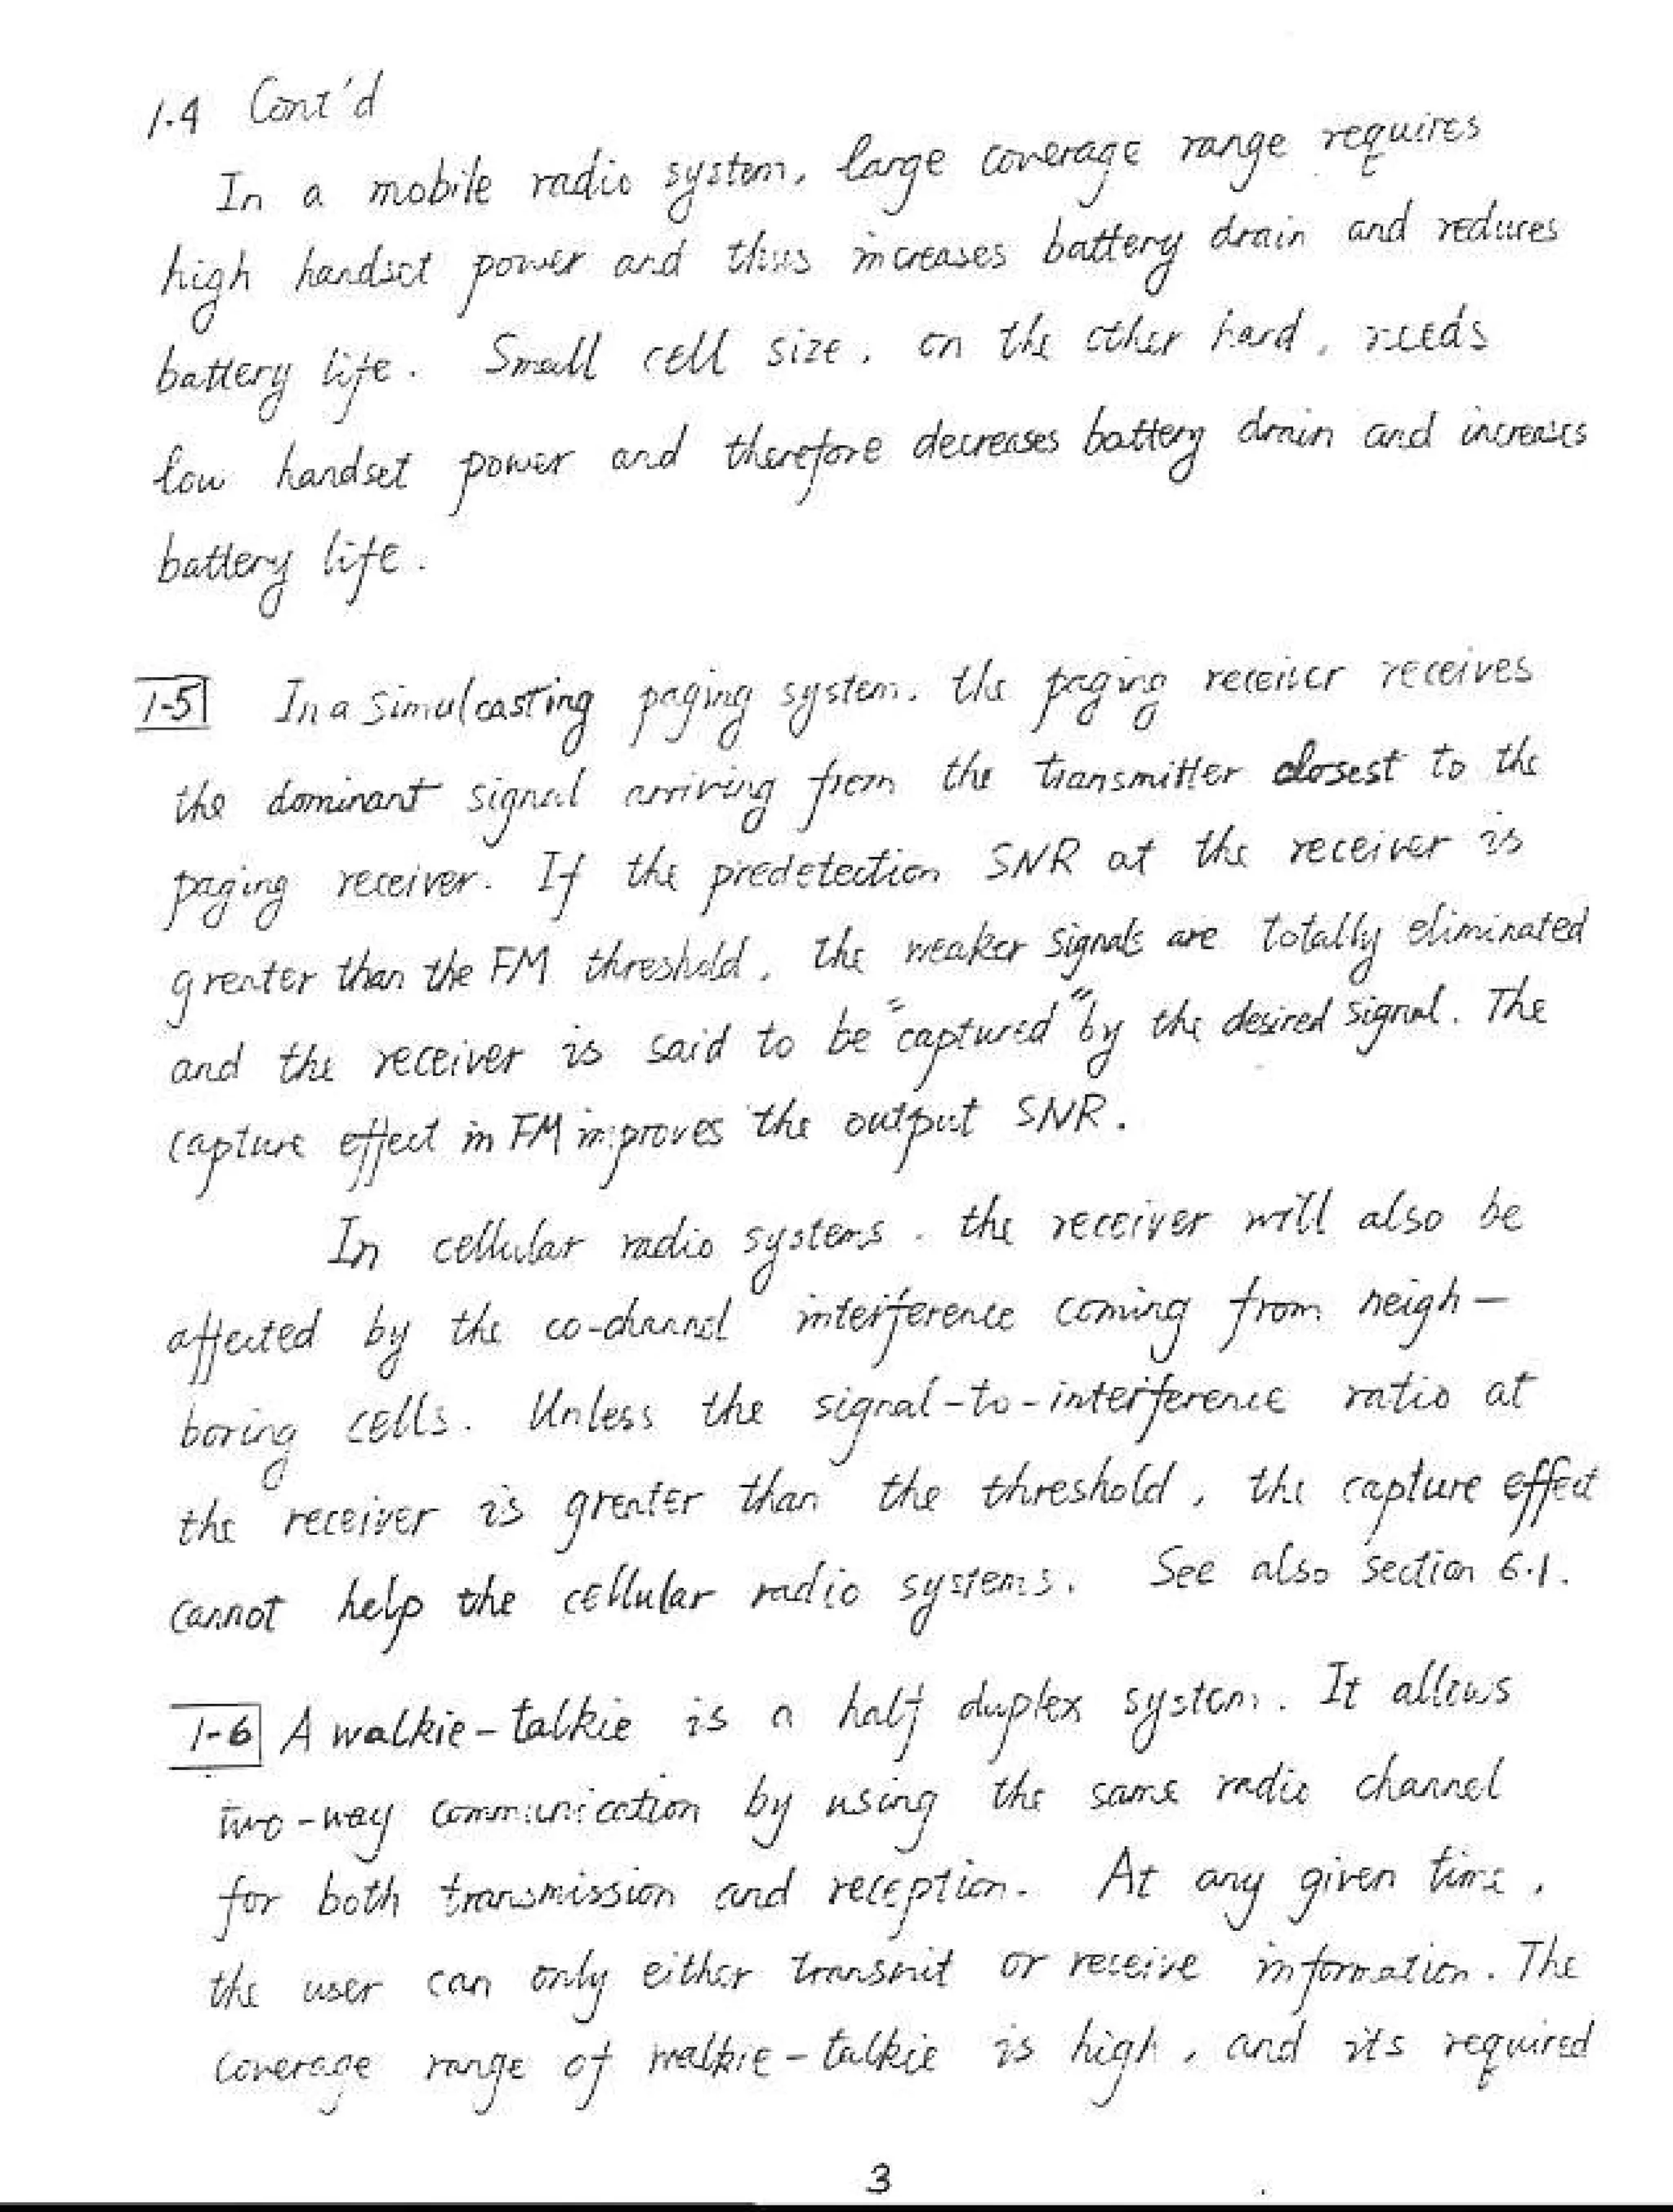 1.4 Cont'd
In a mobile radio system, large coverage range requires
high handset power and thus increases battery drain and reduces
battery life. Small cell size, on the other hand, needs
low handset power and therefore decreases battery drain and increases
battery life.
1-5 In a simulcasting paging system, the paging receiver receives
the dominant signal arriving from the transmitter closest to the
paging receiver. If the predetection SNR at the receiver is
greater than the FM threshold, the weaker signals are totally eliminated
and the receiver is said to be "captured" by the desired signal. The
capture effect in FM improves the output SNR.
In cellular radio systems, the receiver will also be
affected by the co-channel interference coming from neigh-
boring cells. Unless the signal-to-interference ratio at
the receiver is greater than the threshold, the capture effect
cannot help the cellular radio systems. See also section 6.1.
1-6 A walkie-talkie is a half duplex system. It allows
two-way communication by using the same radio channel
for both transmission and reception. At any given time,
the user can only either transmit or receive information. The
coverage range of walkie-talkie is high, and its required
3